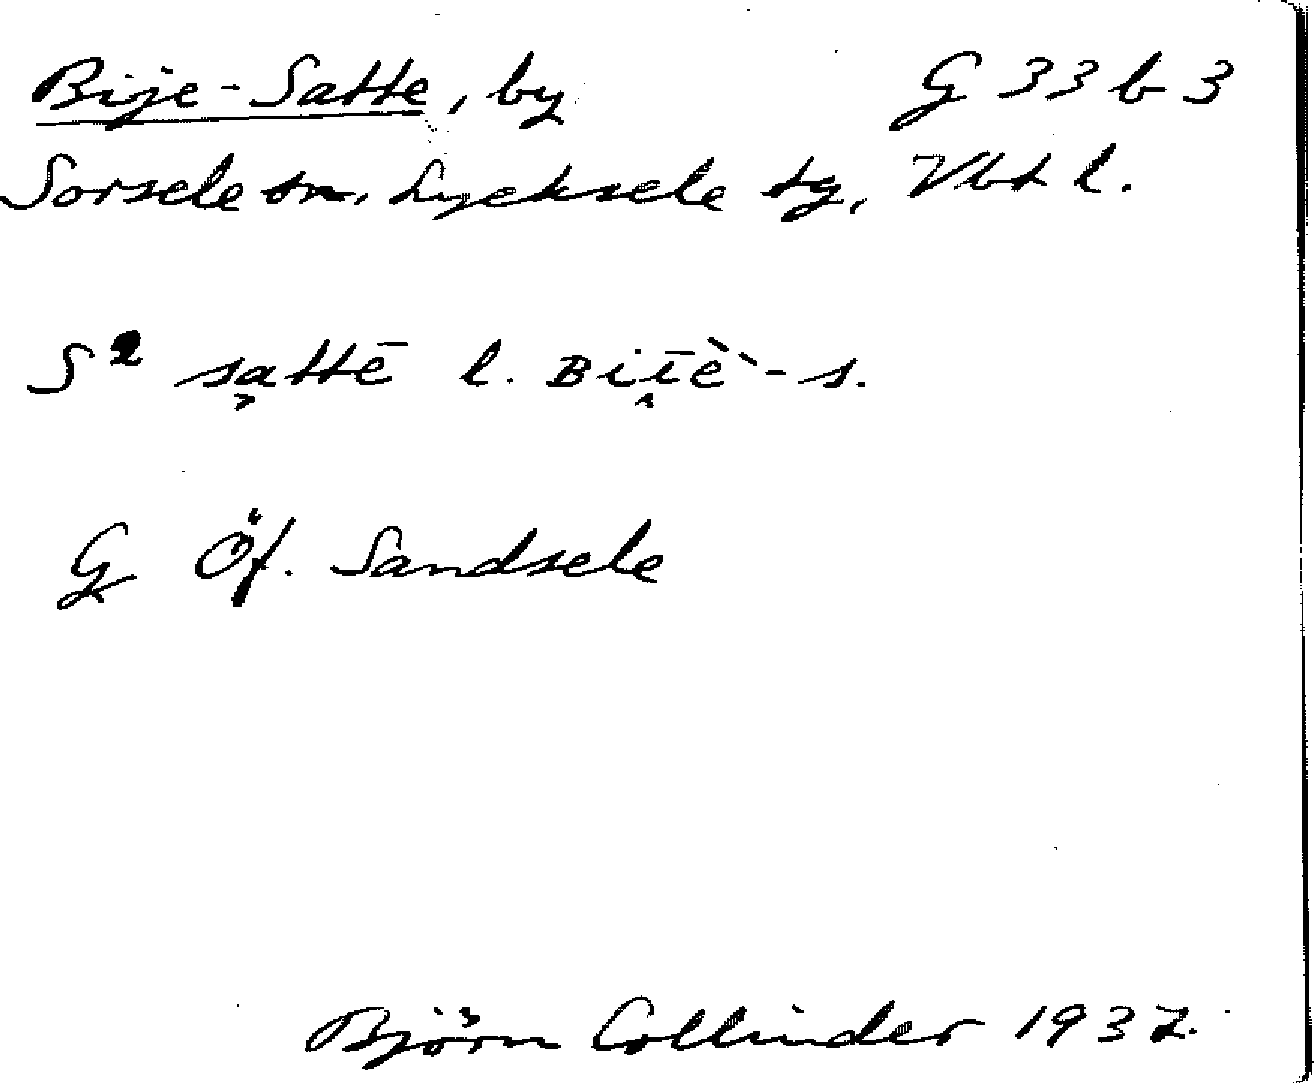 Bije-Satte, by G 33 b 3
Sorsele sn, Lycksele tg, Vbt l.
S² sa̬ttē l. Bi
G Öf. Sandsele
Björn Collinder 1937.